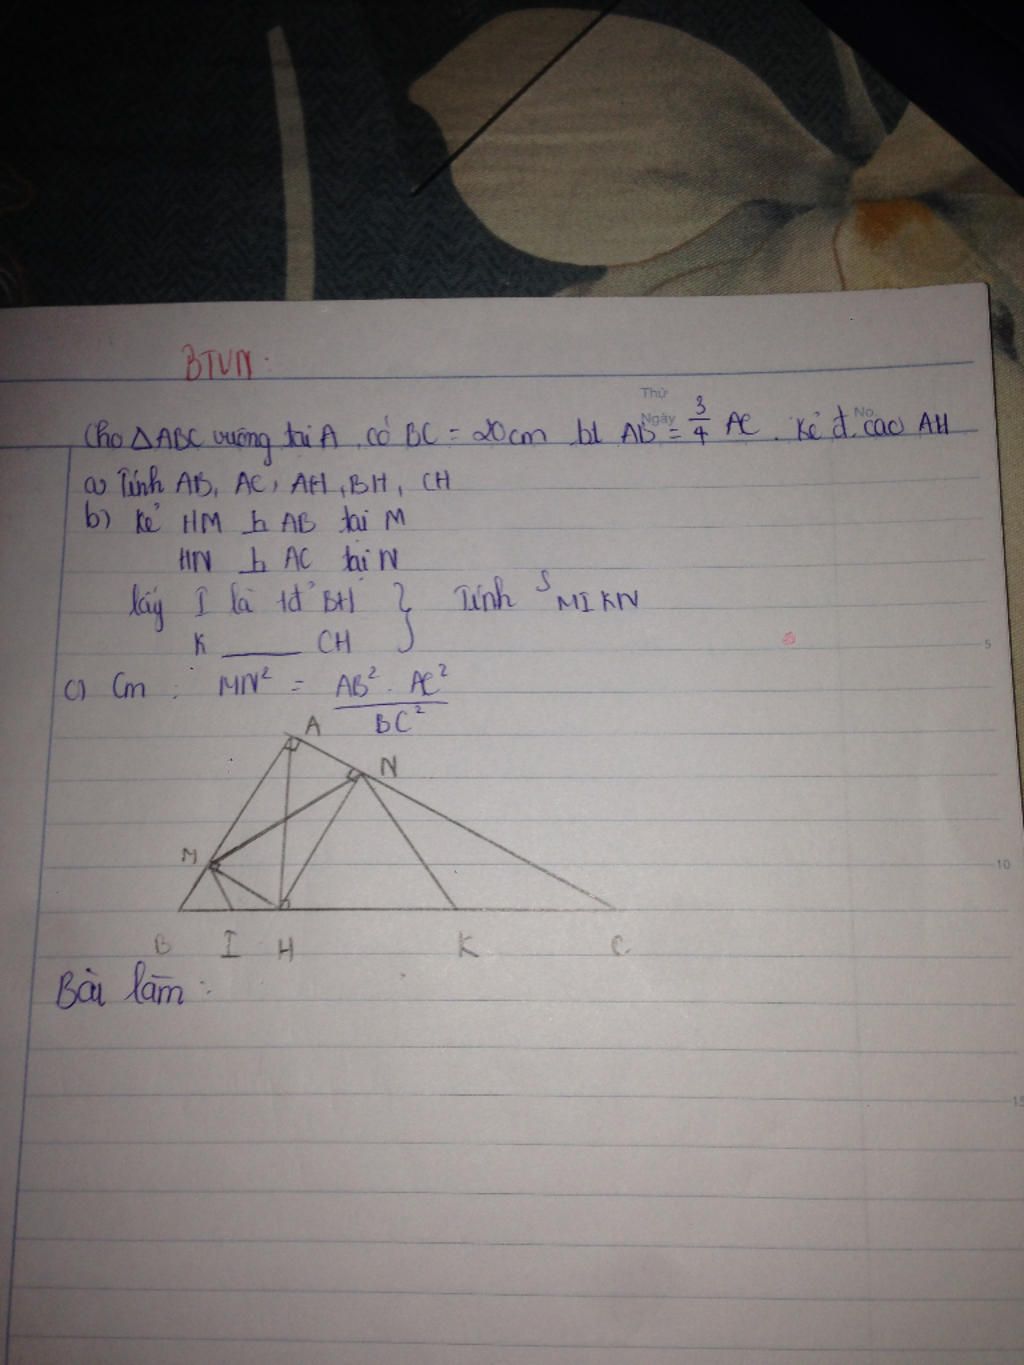 BTVN:
Thứ
Ngày
No.
Cho ΔABC vuông tại A có BC = 20cm bt AB = 3/4 AC. Kẻ đ.cao AH
a) Tính AB, AC, AH, BH, CH
b) Kẻ HM ⊥ AB tại M
HN ⊥ AC tại N
lấy I là tđ BH } Tính S MIKN
K ____ CH
c) Cm: MN² = AB² . AC² / BC²
A
N
M
B I H K C
Bài làm:
5
10
15